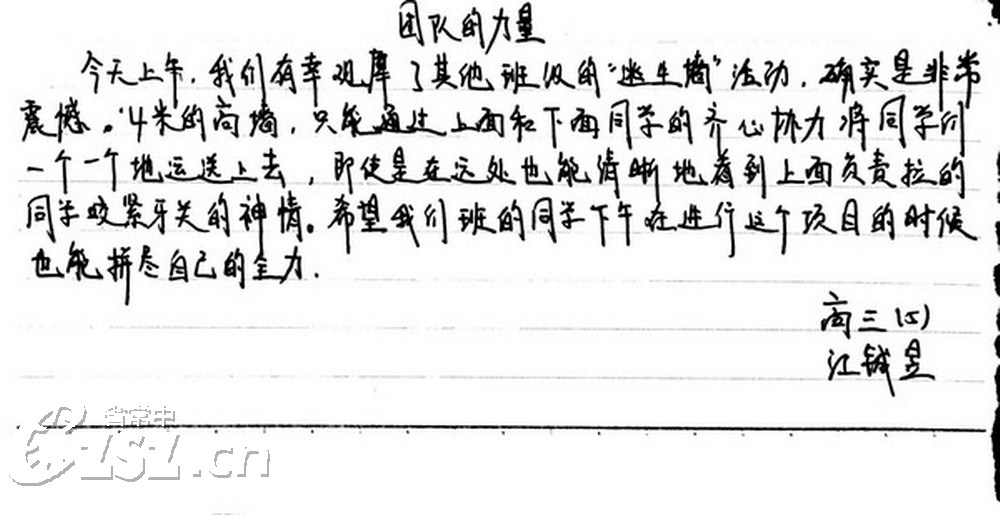 团队的力量
今天上午,我们有幸观摩了其他班级的“逃生墙”活动,确实是非常
震憾。4米的高墙,只能通过上面和下面同学的齐心协力将同学们
一个一个地运送上去,即使是在远处也能清晰地看到上面负责拉的
同学咬紧牙关的神情。希望我们班的同学下午在进行这个项目的时候
也能拼尽自己的全力.
高三(5)
江铖昱
省常中
CZSZ.cn